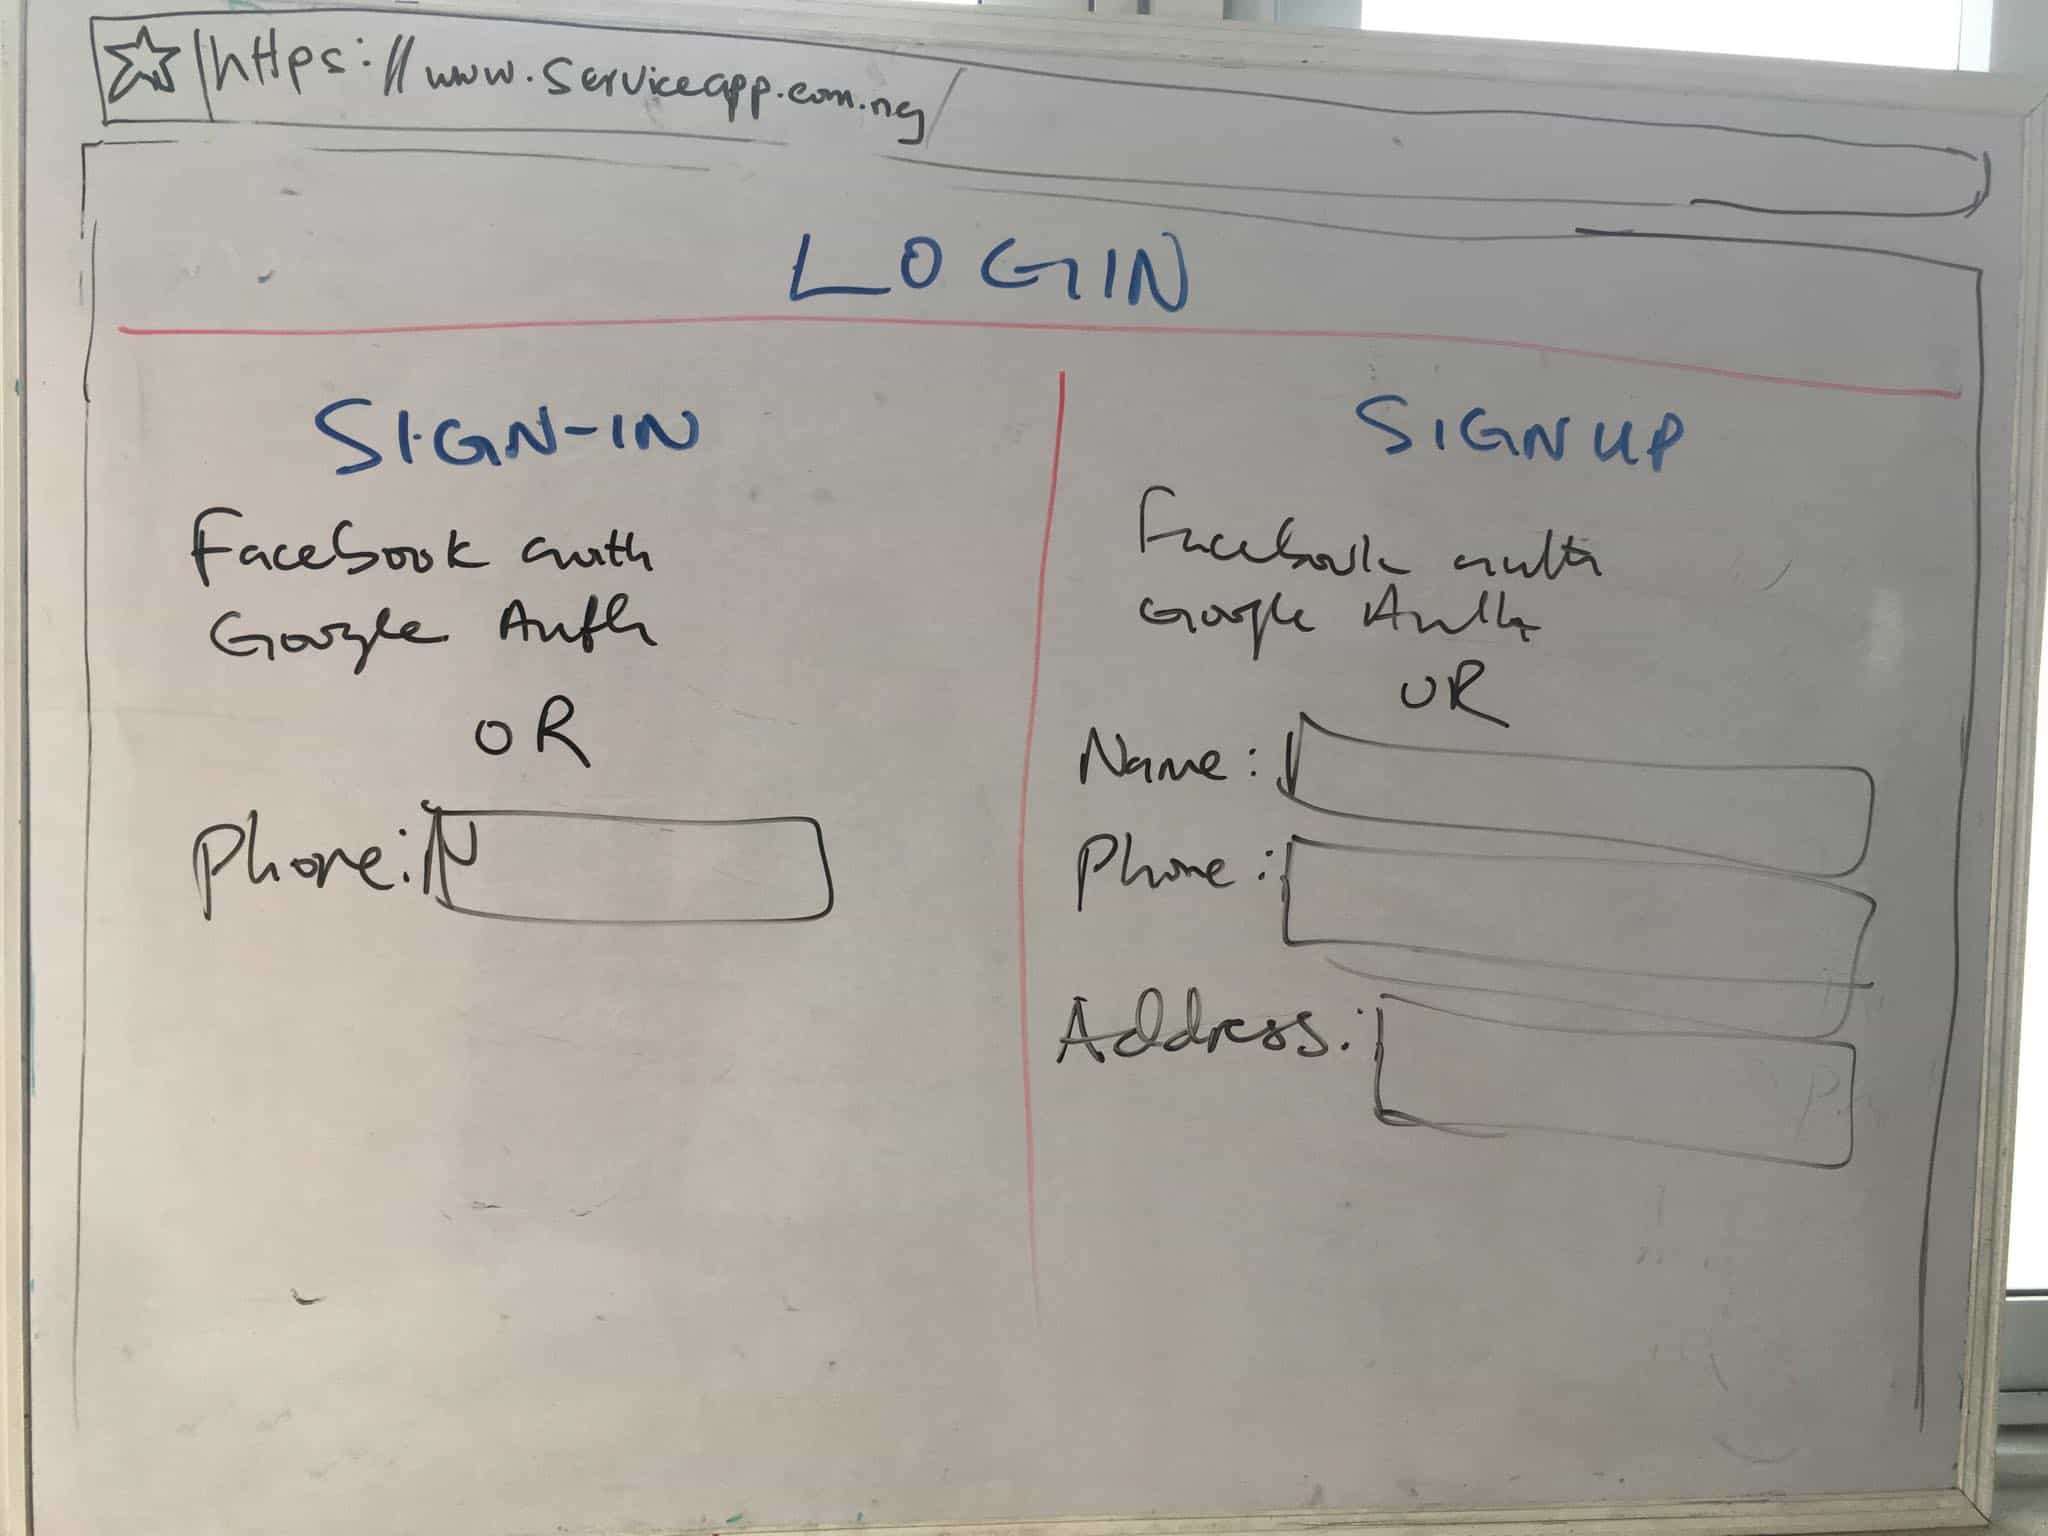 https://www.serviceapp.com.ng/
LOGIN
SIGN-IN
Facebook auth
Google Auth
OR
Phone:
SIGN UP
Facebook auth
Google Auth
OR
Name:
Phone:
Address: